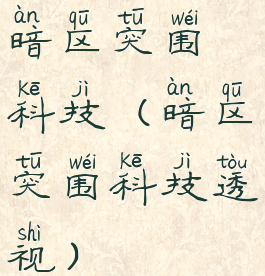 àn qū tū wéi
暗区突围
kē jì（àn qū
科技（暗区
tū wéi kē jì tòu
突围科技透
shì
视）